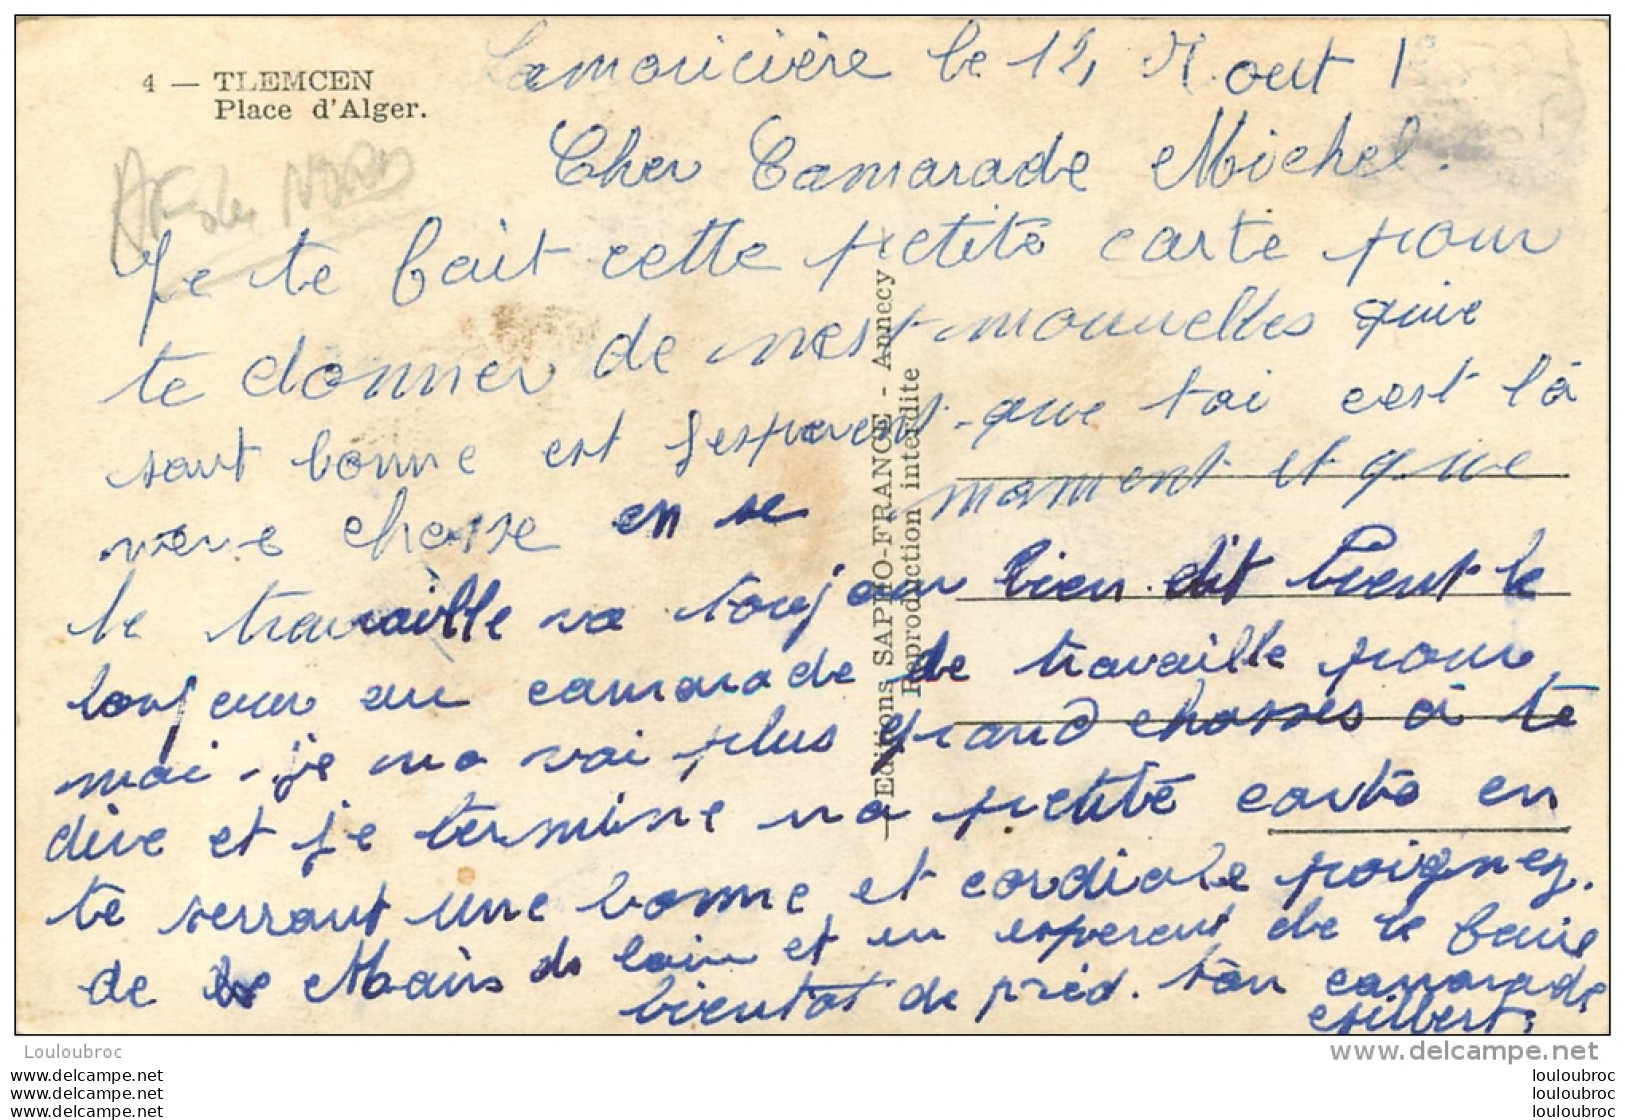 4 — TLEMCEN
Place d'Alger.
Lamoricière le 12, Aout 1
NORD
Cher Camarade Michel.
Je te fait cette petite carte pour
te donner de mest nouvelles quie
sont bonne est j'esperent que toi cest là
meme chosse en se moment et que
le travaille va toujour bien dit bient le
bonjour au camarade de travaille pour
moi - je na vai plus grand chosses à te
dire et je termine na petite carte en
te serrant une bonne et cordiale poignez.
de le Mains de loin et en esperent de le faire
bientot de près. ton camarade
Gilbert.
Editions SAPHO-FRANCE - Annecy
Reproduction interdite
Louloubroc
www.delcampe.net
www.delcampe.net
www.delcampe.net
www.delcampe.net
louloubroc
louloubroc
louloubroc